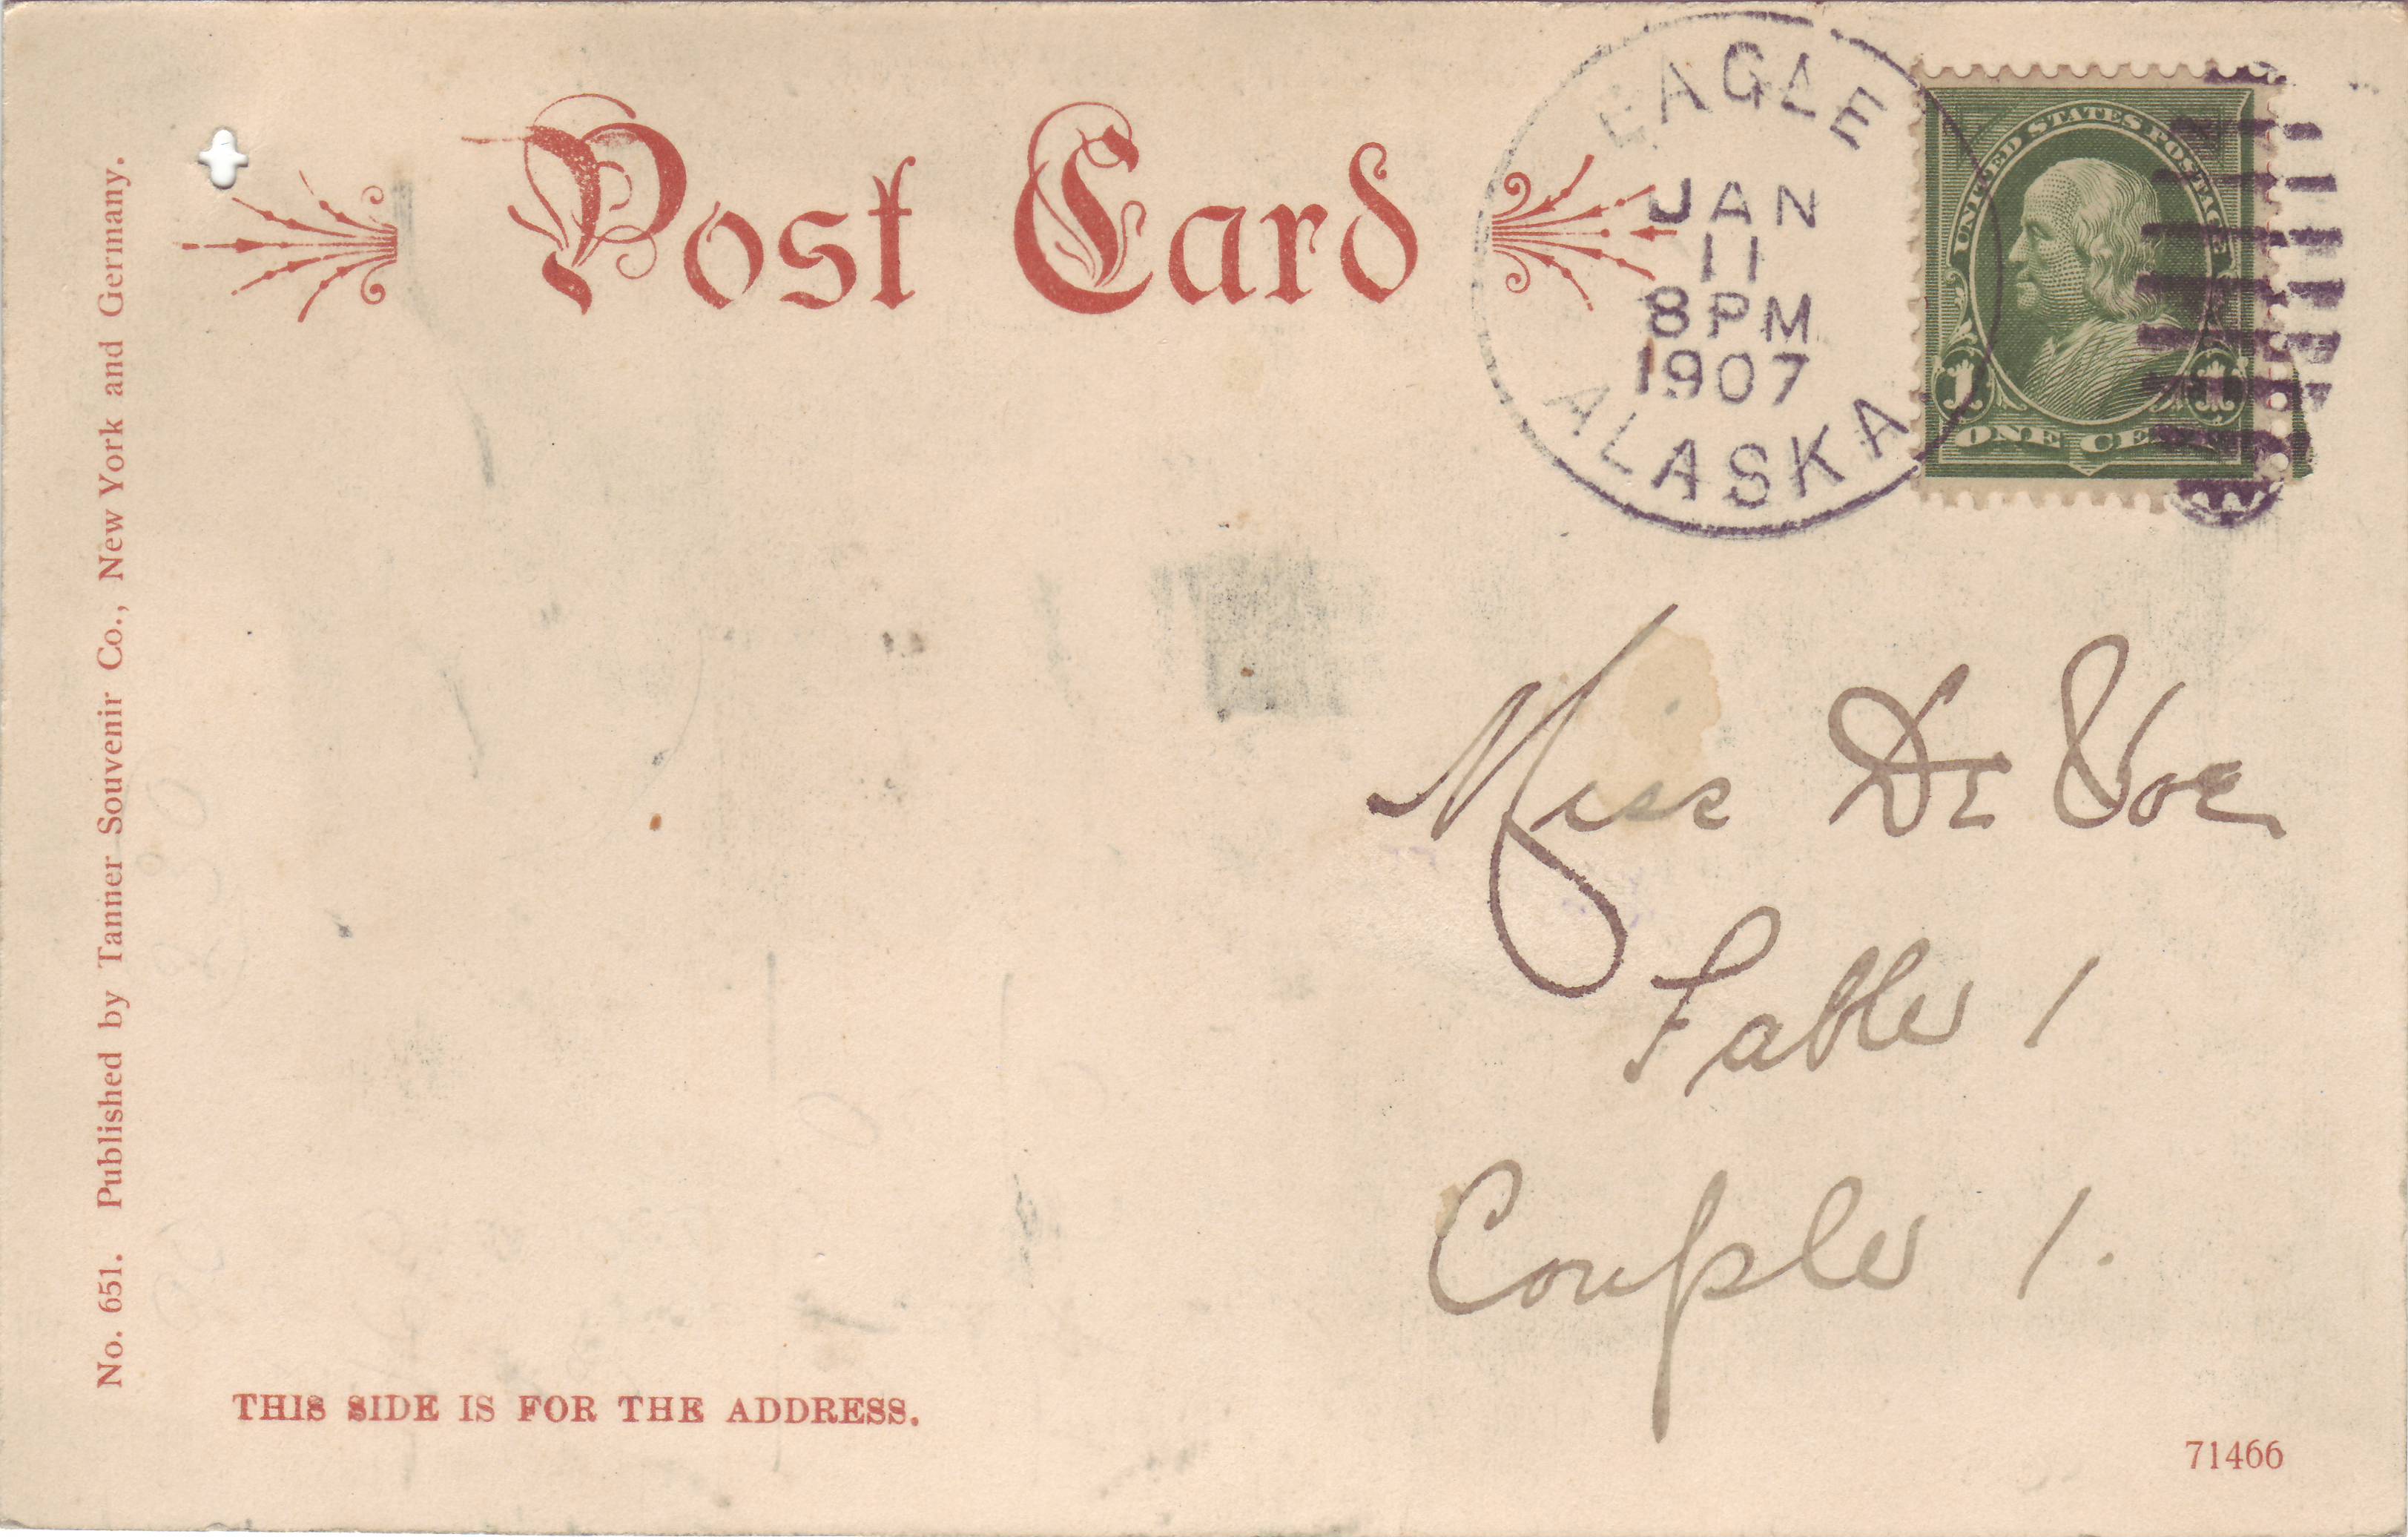 Post Card
EAGLE
JAN
11
8 PM
1907
ALASKA
UNITED STATES POSTAGE
1 1
ONE CE
Miss De Voe
Table 1
Couple 1.
No. 651. Published by Tanner Souvenir Co., New York and Germany.
THIS SIDE IS FOR THE ADDRESS.
71466